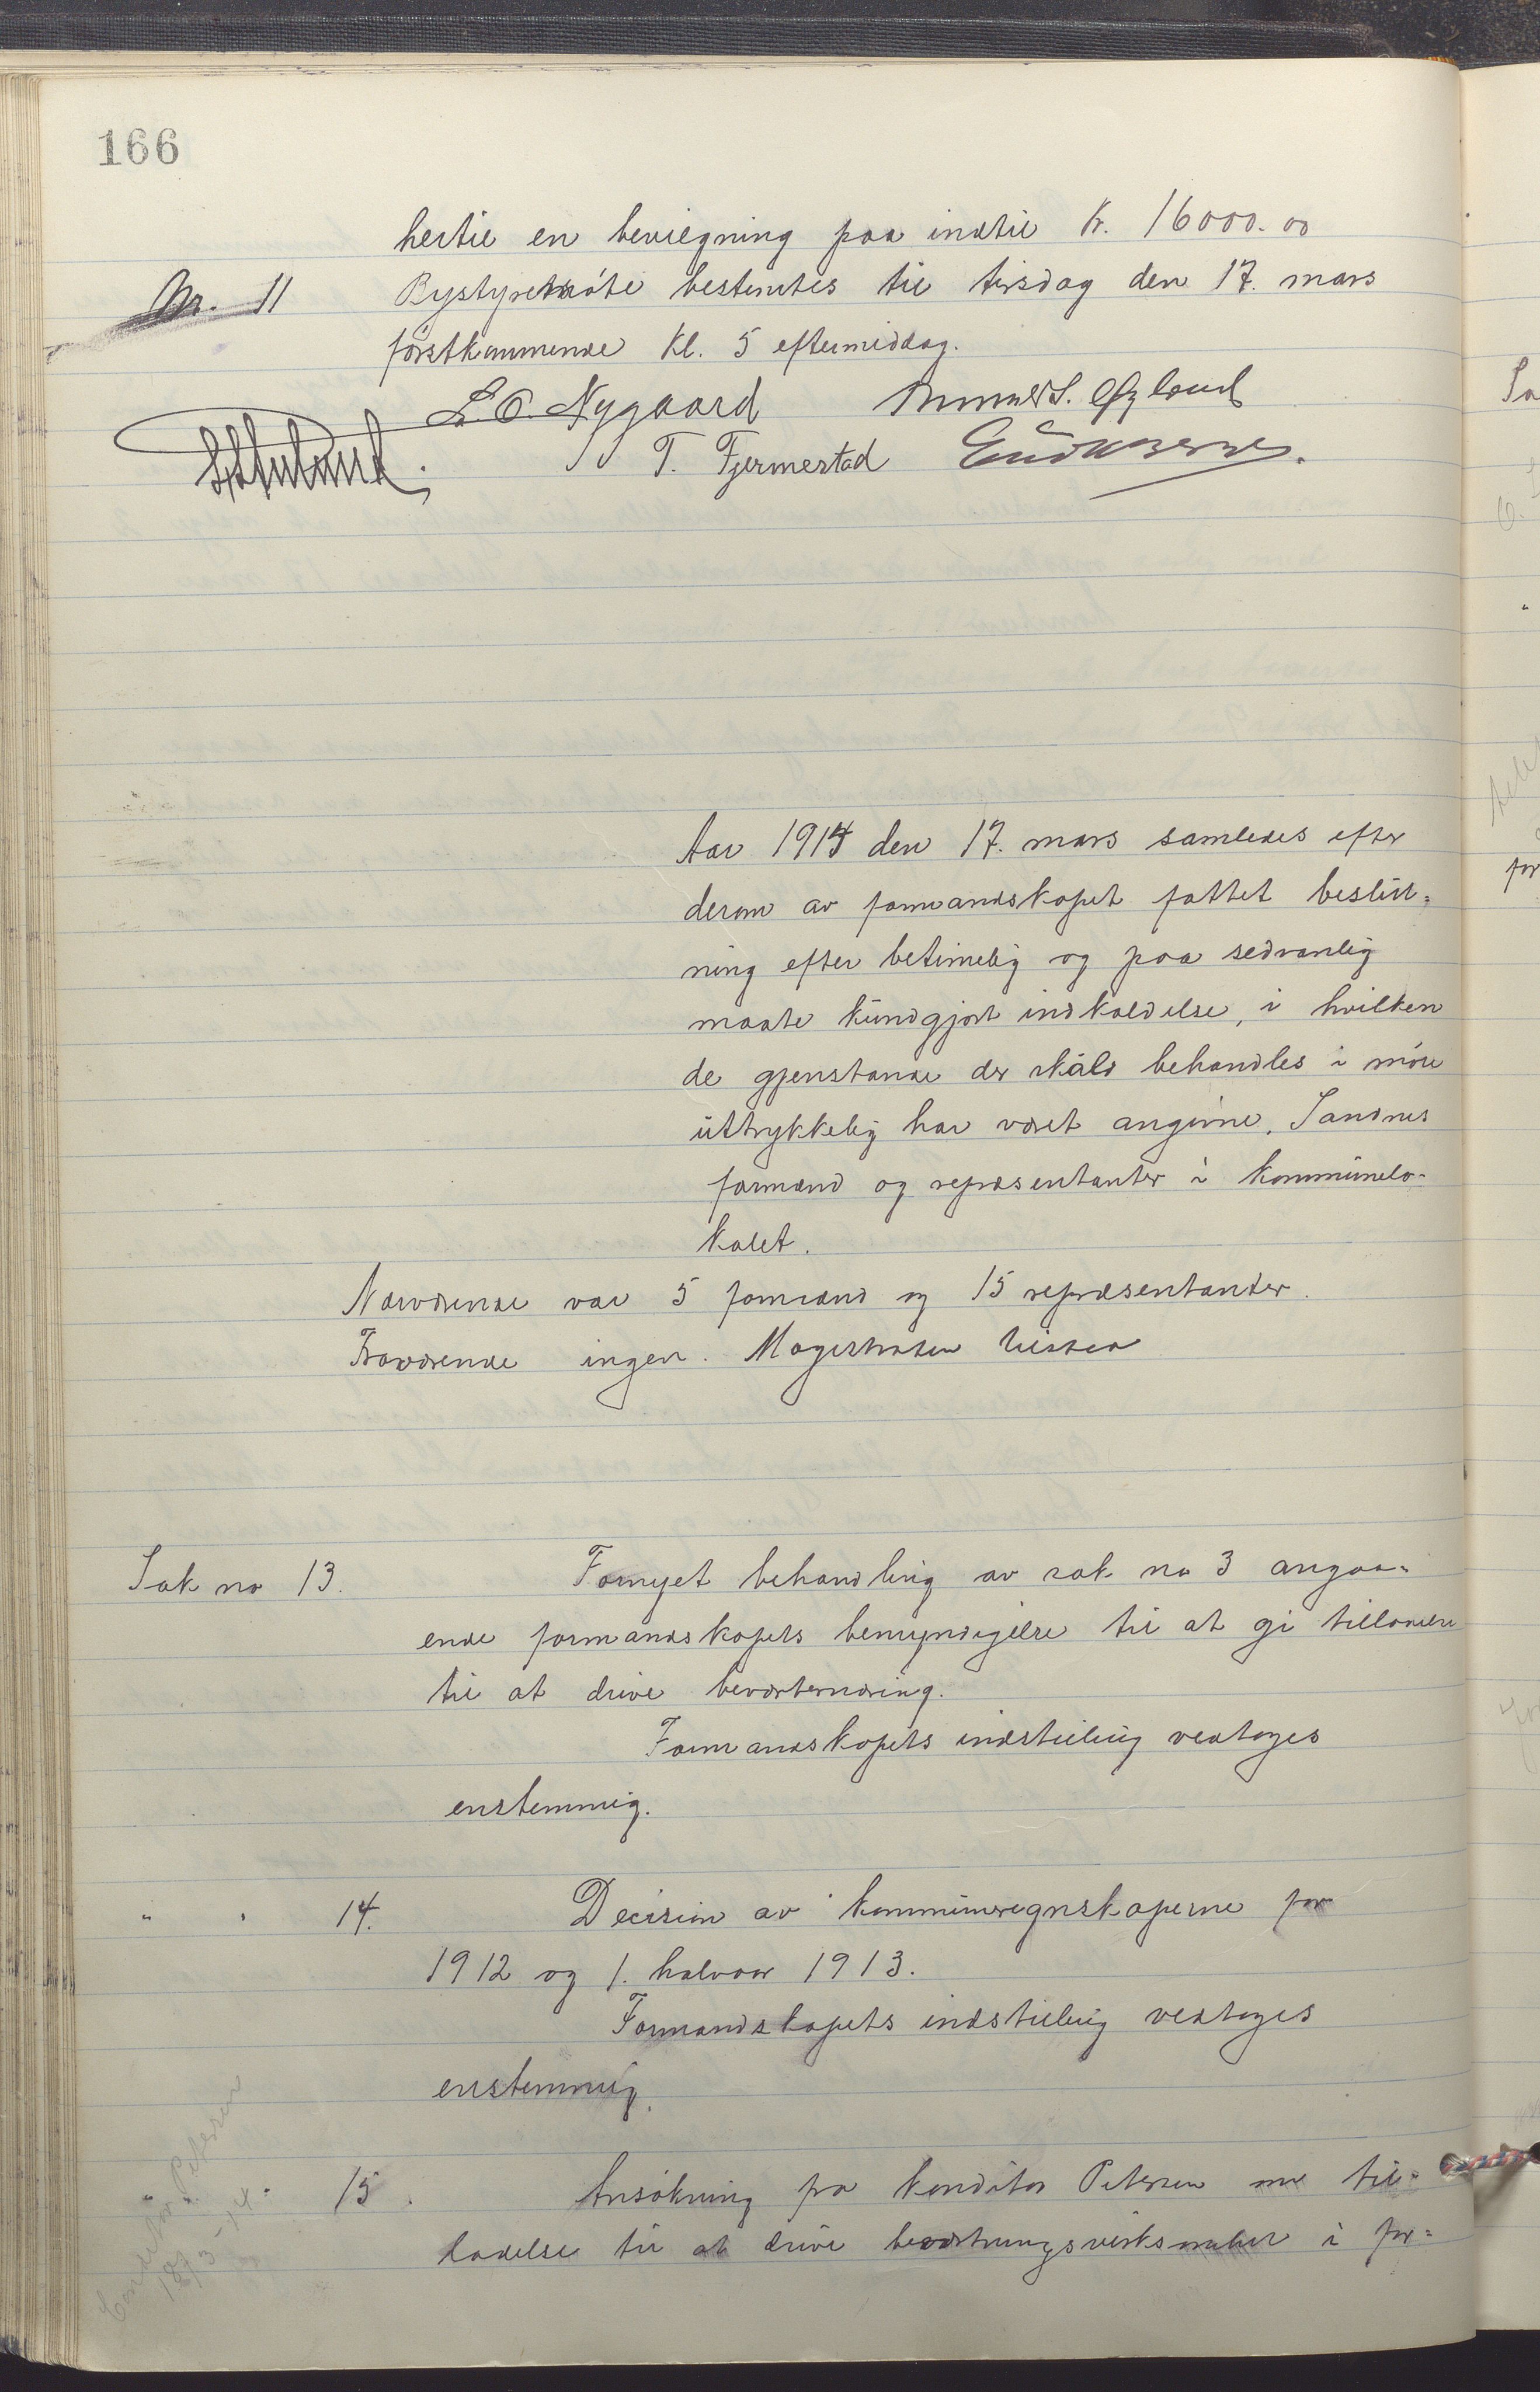 166
hertil en bevilgning paa indtil Kr. 16000.00
Nr. 11 Bystyremöte bestemtes til tirsdag den 17. mars
förstkommende kl. 5 eftermiddag.
L. O. Nygaard
T. Fjermestad
Aar 1914 den 17. mars samledes efter
derom av formandskapet fattet beslut-
ning efter betimelig og paa sedvanlig
maate kundgjort indkaldelse, i hvilken
de gjenstande der skal behandles i möte
uttrykkelig har været angivne, Sandnes
formænd og repræsentanter i kommunelo-
kalet.
Nærværende var 5 formænd og 15 repræsentanter.
Fraværende ingen. Magistraten tilstede
Sak no 13. Fornyet behandling av sak no 3 angaa-
ende formandskapets bemyndigelse til at gi tilladelse
til at drive beværternæring.
Formandskapets indstilling vedtages
enstemmig.
" " 14. Decision av kommuneregnskaperne for
1912 og 1. halvaar 1913.
Formandskapets indstilling vedtages
enstemmig.
" " 15. Ansökning fra Konditor Petersen om til-
ladelse til at drive beværtningsvirksomhet i for-
Conditor Petersen
18/3-14